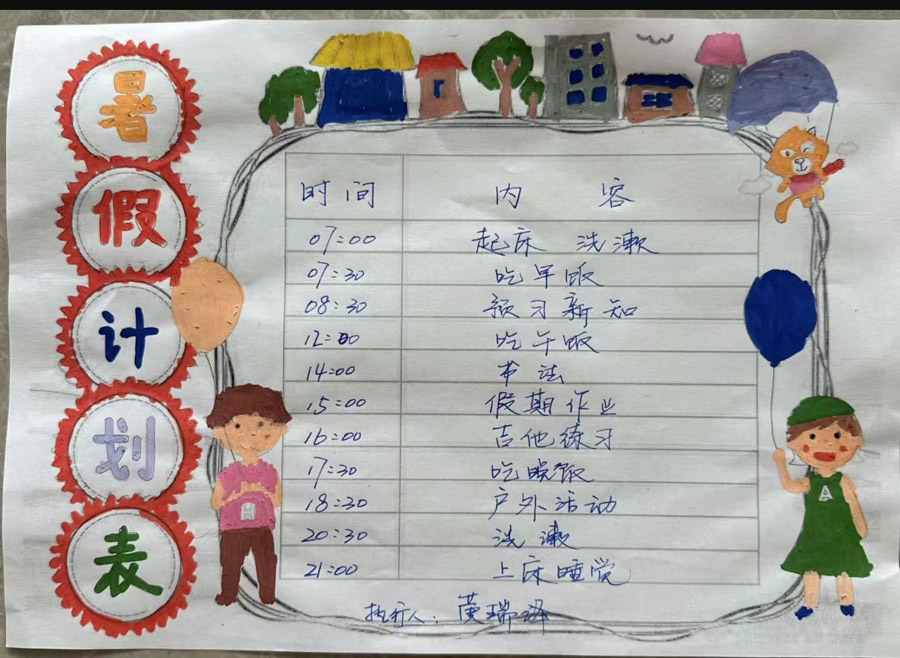 暑假计划表
时间 内容
07:00 起床 洗漱
07:30 吃早饭
08:30 预习新知
12:00 吃午饭
14:00 书法
15:00 假期作业
16:00 吉他练习
17:30 吃晚饭
18:30 户外活动
20:30 洗漱
21:00 上床睡觉
执行人:黄瑞
H
A